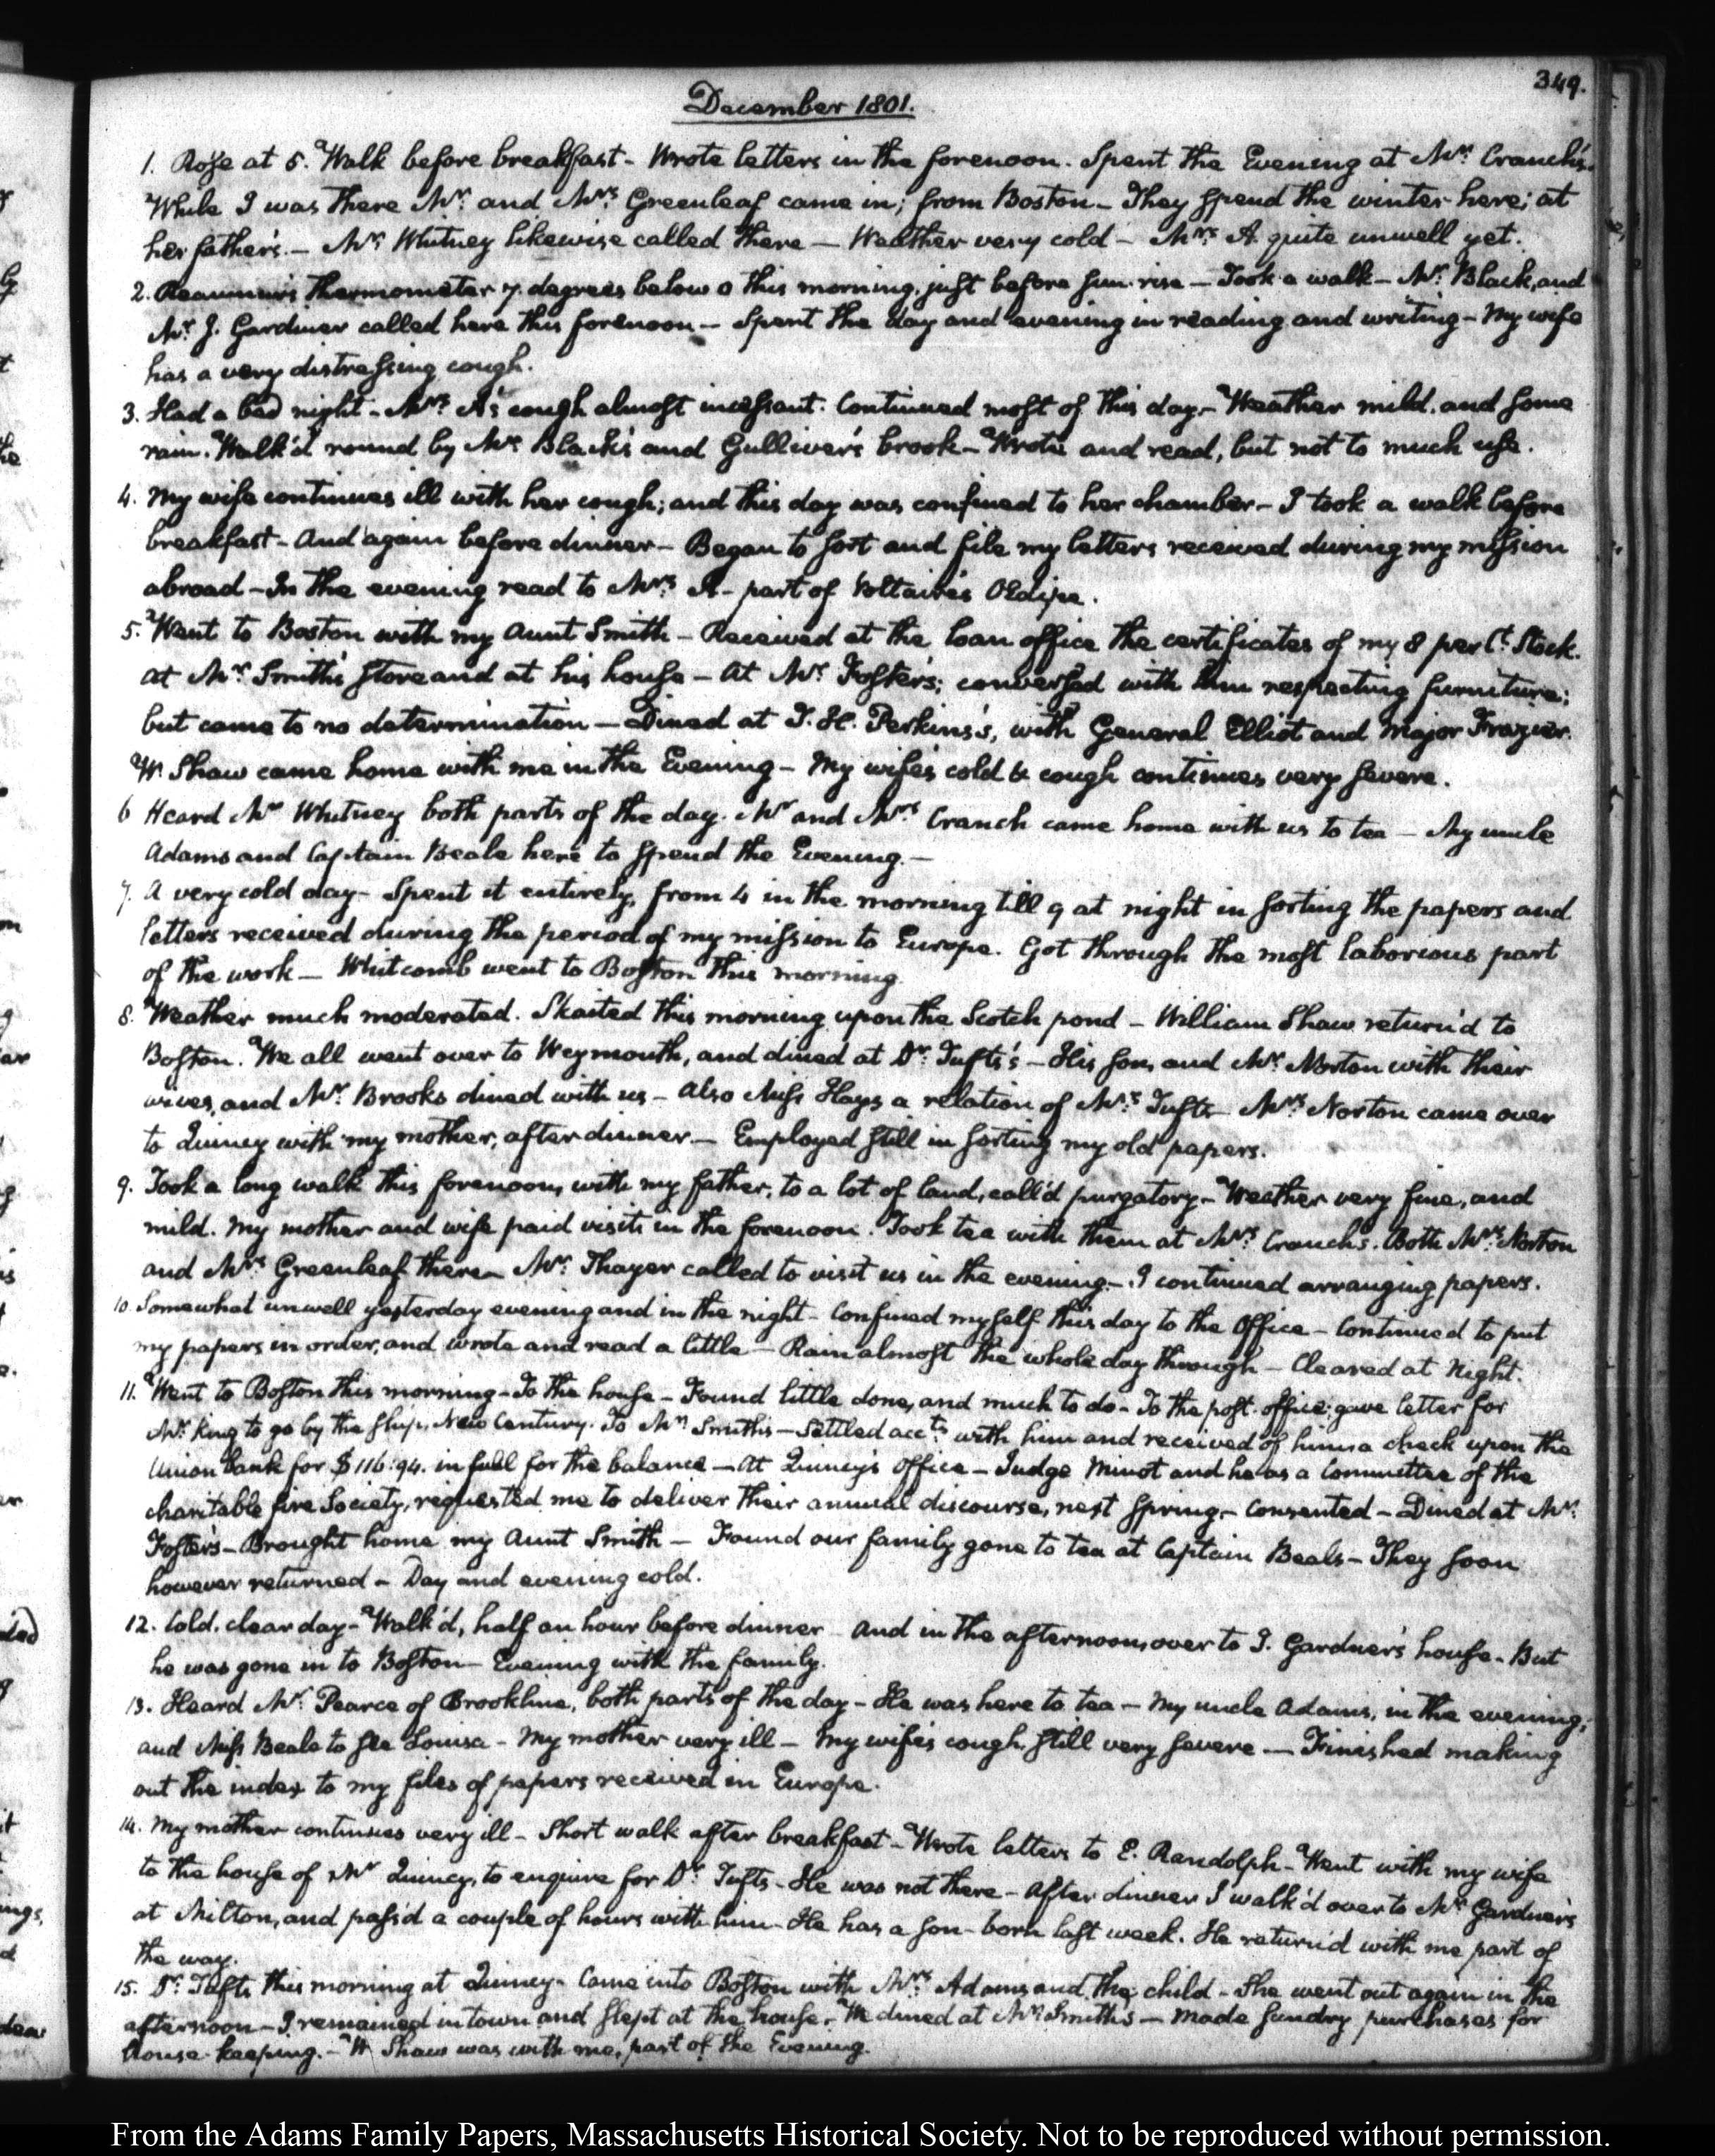 349.
December 1801.
1. Rose at 5. Walk before breakfast - Wrote letters in the forenoon. Spent the Evening at Mr. Cranch's.
While I was there Mr. and Mrs. Greenleaf came in; from Boston - They spend the winter here; at
her father's. - Mrs. Whitney likewise called there - Weather very cold - Mrs. A. quite unwell yet.
2. Reaumur's thermometer 7. degrees below 0 this morning, just before sun-rise - Took a walk - Mr. Black, and
Mr. J. Gardiner called here this forenoon - Spent the day and evening in reading and writing - My wife
has a very distressing cough.
3. Had a bad night - Mrs. A's cough almost incessant. Continued most of this day - Weather mild, and some
rain. Walk'd round by Mr. Black's and Gulliver's brook - Wrote and read, but not to much use.
4. My wife continues ill with her cough; and this day was confined to her chamber - I took a walk before
breakfast - And again before dinner - Began to sort and file my letters received during my mission
abroad - In the evening read to Mrs. A - part of Voltaire's OEdipe.
5. Went to Boston with my Aunt Smith - Received at the loan office the certificates of my 8 per Ct. Stock.
At Mr. Smith's store and at his house - At Mr. Foster's; conversed with him respecting furniture;
but came to no determination - Dined at T. H. Perkins's, with General Elliot and Major Frazier.
W. Shaw came home with me in the Evening - My wife's cold & cough continues very severe.
6 Heard Mr Whitney both parts of the day. Mr and Mrs. Cranch came home with us to tea - My uncle
Adams and Captain Beale here to spend the Evening. -
7. A very cold day - Spent it entirely, from 4 in the morning till 9 at night in sorting the papers and
letters received during the period of my mission to Europe. Got through the most laborious part
of the work - Whitcomb went to Boston this morning.
8. Weather much moderated. Skaited this morning upon the Scotch pond - William Shaw return'd to
Boston. We all went over to Weymouth, and dined at Dr. Tufts's - His son, and Mr. Norton with their
wives, and Mr. Brooks dined with us - Also Miss Hays a relation of Mrs. Tufts - Mrs. Norton came over
to Quincy with my mother, after dinner. - Employed still in sorting my old papers.
9. Took a long walk this forenoon, with my father, to a lot of land, call'd purgatory - Weather very fine, and
mild. My mother and wife paid visits in the forenoon. Took tea with them at Mrs. Cranch's. Both Mrs. Norton
and Mrs. Greenleaf there - Mr. Thayer called to visit us in the evening - I continued arranging papers.
10. Somewhat unwell yesterday evening and in the night - Confined myself this day to the Office - Continued to put
my papers in order, and wrote and read a little - Rain almost the whole day through - Cleared at Night.
11. Went to Boston this morning - To the house - Found little done, and much to do - To the post-office; gave letter for
Mr. King to go by the ship, New Century. To Mr. Smith's - Settled accts. with him and received of him a check upon the
Union Bank for $116:94. in full for the balance - At Quincy's office - Judge Minot and he as a Committee of the
charitable fire Society, requested me to deliver their annual discourse, next Spring - Consented - Dined at Mr.
Foster's - Brought home my Aunt Smith - Found our family gone to tea at Captain Beals - They soon
however returned - Day and evening cold.
12. Cold, clear day - Walk'd, half an hour before dinner - And in the afternoon, over to J. Gardner's house - But
he was gone in to Boston - Evening with the family.
13. Heard Mr. Pearce of Brookline, both parts of the day - He was here to tea - My uncle Adams, in the evening;
and Miss Beale to see Louisa - My mother very ill - My wife's cough, still very severe - Finished making
out the index to my files of papers received in Europe.
14. My mother continues very ill - Short walk after breakfast - Wrote letters to E. Randolph - Went with my wife
to the house of Mr Quincy, to enquire for Dr. Tufts - He was not there - After dinner I walk'd over to Mr. Gardner's
at Milton, and pass'd a couple of hours with him - He has a son - born last week. He return'd with me part of
the way.
15. Dr. Tufts this morning at Quincy - Came into Boston with Mrs. Adams and the child - She went out again in the
afternoon - I remained in town and slept at the house - We dined at Mr. Smith's - Made sundry purchases for
House-keeping. - W Shaw was with me, part of the Evening.
From the Adams Family Papers, Massachusetts Historical Society. Not to be reproduced without permission.